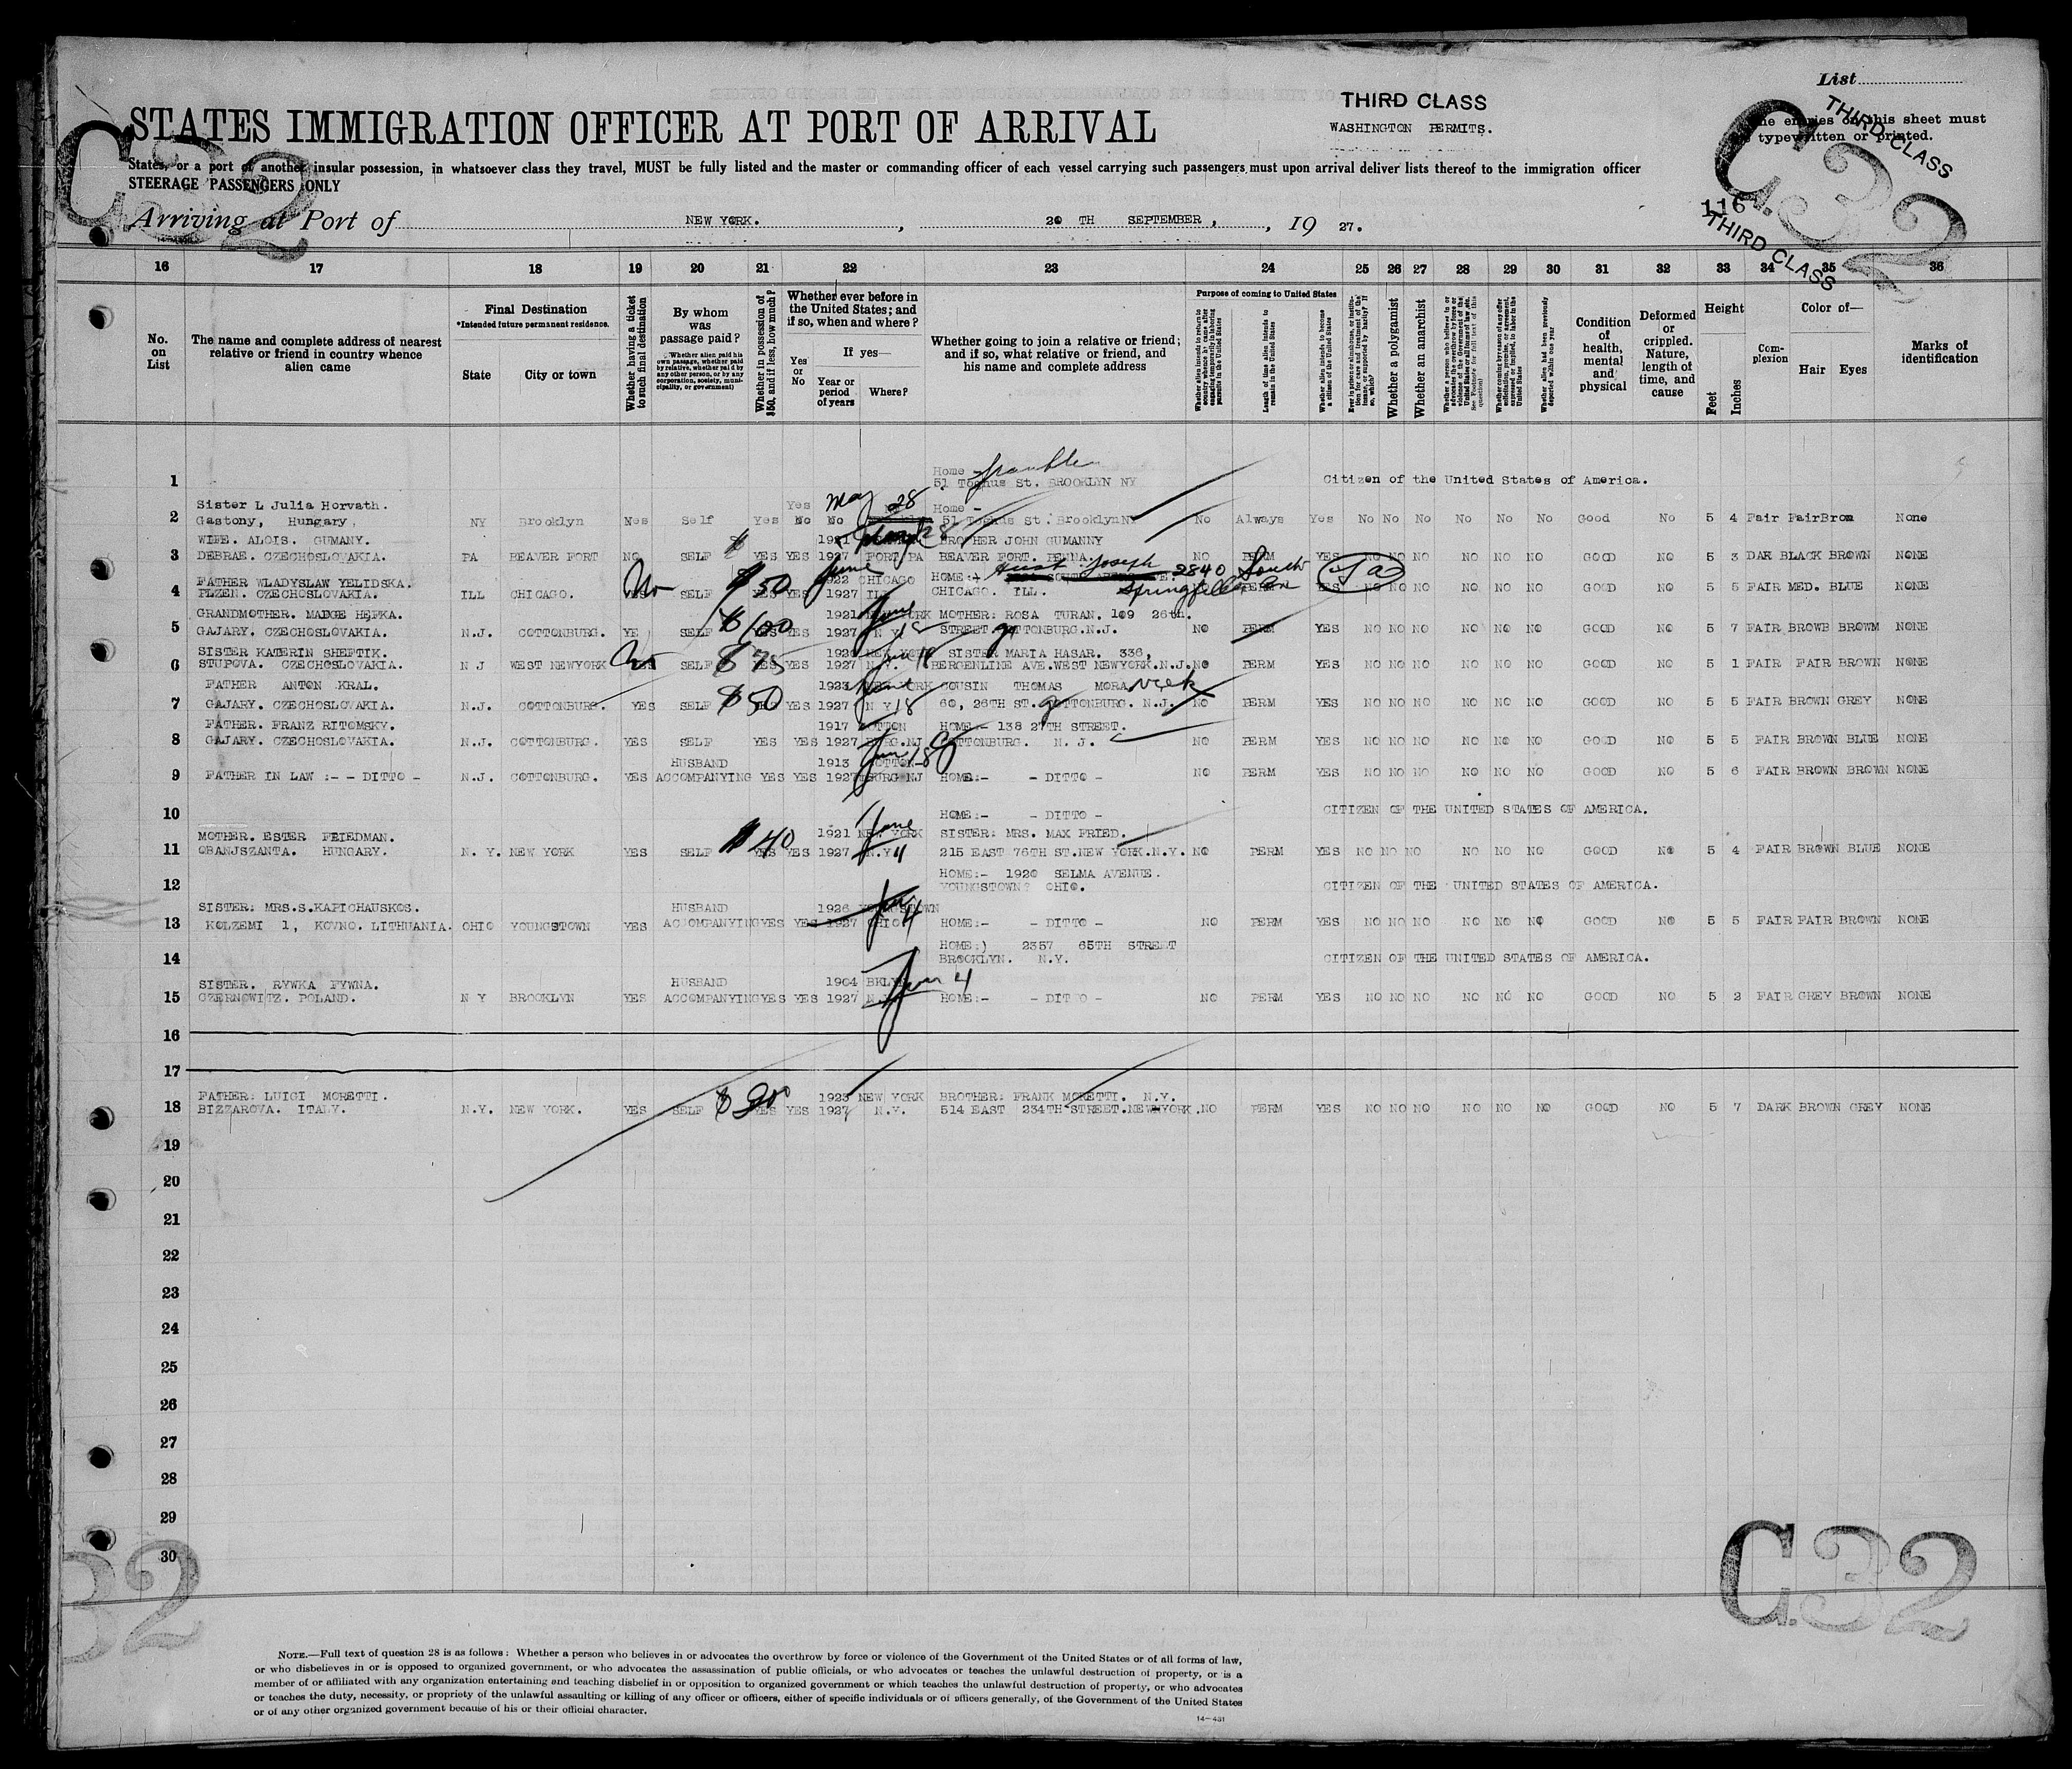 List
THIRD CLASS
WASHINGTON PERMITS.
STATES IMMIGRATION OFFICER AT PORT OF ARRIVAL
The entries on this sheet must
be typewritten or printed.
THIRD CLASS
C32
C32
States, or a port of another insular possession, in whatsoever class they travel, MUST be fully listed and the master or commanding officer of each vessel carrying such passengers must upon arrival deliver lists thereof to the immigration officer
STEERAGE PASSENGERS ONLY
116
THIRD CLASS
Arriving at Port of NEW YORK. , 20 TH SEPTEMBER, , 19 27.
16 17 18 19 20 21 22 23 24 25 26 27 28 29 30 31 32 33 34 35 36
No. on List
The name and complete address of nearest relative or friend in country whence alien came
Final Destination
*Intended future permanent residence.
State City or town
Whether having a ticket to such final destination
By whom was passage paid?
Whether alien paid his own passage, whether paid by relative, whether paid by any other person, or by any corporation, society, municipality, or government)
Whether in possession of $50, and if less, how much?
Whether ever before in the United States; and if so, when and where?
Yes or No
If yes—
Year or period of years
Where?
Whether going to join a relative or friend; and if so, what relative or friend, and his name and complete address
Purpose of coming to United States
Length of time alien intends to remain in the United States
Whether alien intends to become a citizen of the United States
Whether a polygamist
Whether an anarchist
Condition of health, mental and physical
Deformed or crippled. Nature, length of time, and cause
Height
Feet Inches
Complexion
Color of—
Hair Eyes
Marks of identification
1 Home -
51 Toghus St. BROOKLYN NY Citizen of the United States of America.
Sister L Julia Horvath. Yes May 28 Home -
2 Gastony, Hungary, NY Brooklyn Self Yes No No 51 Toghus St. Brooklyn NY No Always Yes No No No No No No Good No 5 4 Fair Fair Bron None
WIFE. ALOIS. GUMANY. 1921 BROTHER JOHN GUMANNY
3 DEBRAE. CZECHOSLOVAKIA. PA BEAVER FORT NO SELF YES YES 1927 FORT PA BEAVER FORT. PENNA. NO PERM YES NO NO NO NO NO NO GOOD NO 5 3 DAK BLACK BROWN NONE
FATHER WLADYSLAW YELIDSKA. June 1922 CHICAGO HOME:- Joseph 2840 South
4 PLZEN. CZECHOSLOVAKIA. ILL CHICAGO. No SELF $50 YES YES 1927 ILL CHICAGO. ILL. Springfield PERM YES NO NO NO NO NO NO GOOD NO 5 5 FAIR MED. BLUE NONE
GRANDMOTHER. MADGE HEPKA. 1921 NEW YORK MOTHER: ROSA TURAN. 109 26th.
5 GAJARY. CZECHOSLOVAKIA. N.J. COTTONBURG. YE SELF $100 YES YES 1927 N Y STREET. COTTONBURG.N.J. NO PERM YES NO NO NO NO NO NO GOOD NO 5 7 FAIR BROWB BROWM NONE
SISTER KATERIN SHEFTIK. 1920 NEW YORK SISTER MARIA HASAR. 336,
6 STUPOVA. CZECHOSLOVAKIA. N J WEST NEWYORK No SELF $75 YES YES 1927 N.Y. BERGENLINE AVE.WEST NEWYORK.N.J. NO PERM YES NO NO NO NO NO NO GOOD NO 5 1 FAIR FAIR BROWN NONE
FATHER ANTON KRAL. 1923 NEW YORK COUSIN THOMAS MORAVCEK
7 GAJARY. CZECHOSLOVAKIA. N.J. COTTONBURG. YES SELF $50 YES 1927 N Y 18 60, 26TH ST. COTTONBURG. N.J. NO PERM YES NO NO NO NO NO NO GOOD NO 5 5 FAIR BROWN GREY NONE
FATHER. FRANZ RITOMSKY. 1917 COTTON HOME - 138 27TH STREET.
8 GAJARY. CZECHOSLOVAKIA. N.J. COTTONBURG. YES SELF YES YES 1927 BURG.NJ COTTONBURG. N. J. NO PERM YES NO NO NO NO NO NO GOOD NO 5 5 FAIR BROWN BLUE NONE
HUSBAND 1913 COTTON
9 FATHER IN LAW :- - DITTO - N.J. COTTONBURG. YES ACCOMPANYING YES YES 1927 BURG NJ HOME:- - DITTO - NO PERM YES NO NO NO NO NO NO GOOD NO 5 6 FAIR BROWN BROWN NONE
10 HOME:- - DITTO - CITIZEN OF THE UNITED STATES OF AMERICA.
MOTHER. ESTER FEIEDMAN. 1921 NEW YORK SISTER: MRS. MAX FRIED.
11 OBANJSZANTA. HUNGARY. N. Y. NEW YORK YES SELF $40 YES YES 1927 N.Y 4 215 EAST 76TH ST.NEW YORK.N.Y. NO PERM YES NO NO NO NO NO NO GOOD NO 5 4 FAIR BROWN BLUE NONE
HOME:- 1920 SELMA AVENUE.
12 YOUNGSTOWN? OHIO. CITIZEN OF THE UNITED STATES OF AMERICA.
SISTER: MRS.S.KAPICHAUSKOS. HUSBAND 1926 YOUNGSTOWN
13 KOLZEMI 1, KOVNO. LITHUANIA. OHIO YOUNGSTOWN YES ACCOMPANYING YES YES 1927 OHIO 4 HOME:- - DITTO - NO PERM YES NO NO NO NO NO NO GOOD NO 5 5 FAIR FAIR BROWN NONE
HOME:) 2357 65TH STREET
14 BROOKLYN. N.Y. CITIZEN OF THE UNITED STATES OF AMERICA.
SISTER. RYWKA FYWNA. HUSBAND 1904 BKLYN 4
15 CZERNOWITZ. POLAND. N Y BROOKLYN YES ACCOMPANYING YES YES 1927 N.Y. HOME:- - DITTO - NO PERM YES NO NO NO NO NO NO GOOD NO 5 2 FAIR GREY BROWN NONE
16
17
FATHER: LUIGI MORETTI. 1923 NEW YORK BROTHER: FRANK MORETTI. N.Y.
18 BIZZAROVA. ITALY. N.Y. NEW YORK. YES SELF $20 YES YES 1927 N.Y. 514 EAST 234TH STREET.NEW YORK. NO PERM YES NO NO NO NO NO NO GOOD NO 5 7 DARK BROWN GREY NONE
19
20
21
22
23
24
25
26
27
28
29
30
32
C.32
NOTE.—Full text of question 28 is as follows: Whether a person who believes in or advocates the overthrow by force or violence of the Government of the United States or of all forms of law,
or who disbelieves in or is opposed to organized government, or who advocates the assassination of public officials, or who advocates or teaches the unlawful destruction of property, or is a
member of or affiliated with any organization entertaining and teaching disbelief in or opposition to organized government or which teaches the unlawful destruction of property, or who advocates
or teaches the duty, necessity, or propriety of the unlawful assaulting or killing of any officer or officers, either of specific individuals or of officers generally, of the Government of the United States
or of any other organized government because of his or their official character.
14—431